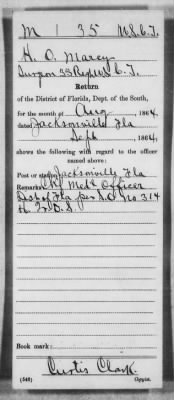 M | 35 | U.S.C.T.
H. O. Marcy
Surgeon 35 Reg U.S.C.T.
Return
of the District of Florida, Dept. of the South,
for the month of Aug, 1864,
dated Jacksonville Fla
Sept, 1864,
shows the following with regard to the officer
named above:
Post or station Jacksonville Fla
Remarks Chf Med Officer
Dist of Fla per S.O. No. 314
D.S.
Book mark:
Curtis Clark
(546) Copyist.